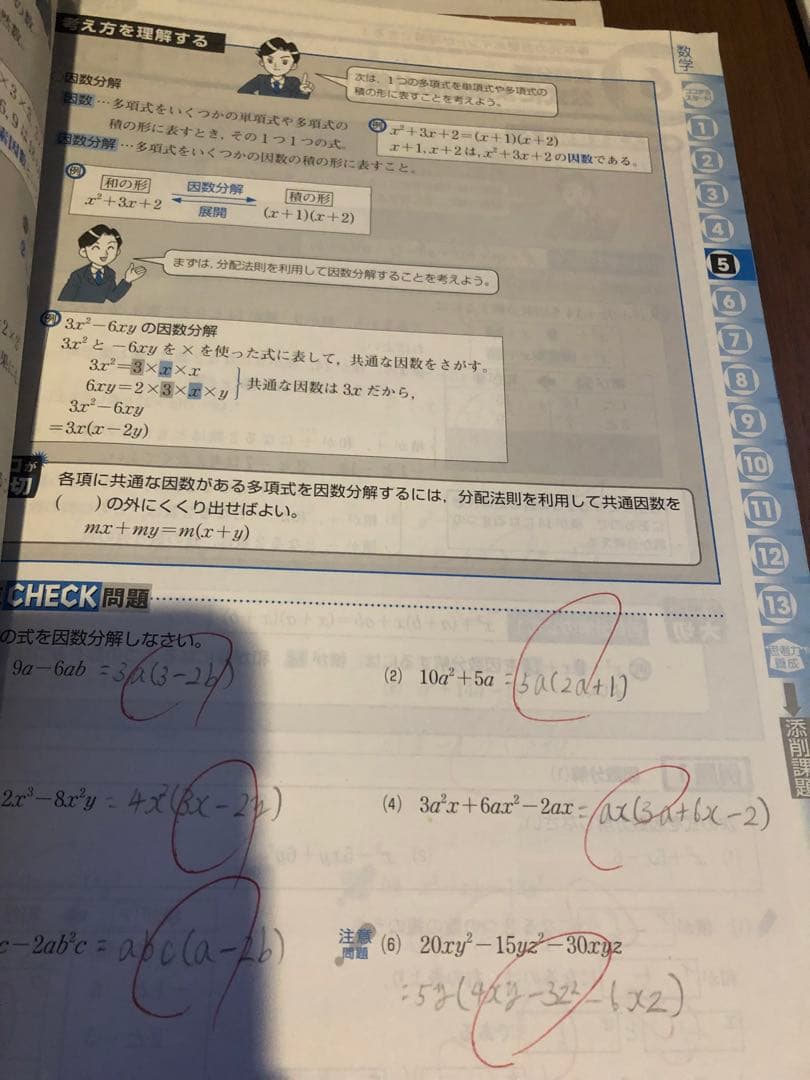 考え方を理解する
数学
次は,1つの多項式を単項式や多項式の
積の形に表すことを考えよう。
因数分解
因数…多項式をいくつかの単項式や多項式の
積の形に表すとき,その1つ1つの式。
因数分解…多項式をいくつかの因数の積の形に表すこと。
例 x²+3x+2=(x+1)(x+2)
x+1, x+2は, x²+3x+2の因数である。
例
和の形 因数分解 積の形
x²+3x+2 展開 (x+1)(x+2)
まずは,分配法則を利用して因数分解することを考えよう。
例 3x²-6xyの因数分解
3x²と-6xyを×を使った式に表して,共通な因数をさがす。
3x²=3×x×x
6xy=2×3×x×y
共通な因数は3xだから,
3x²-6xy
=3x(x-2y)
各項に共通な因数がある多項式を因数分解するには,分配法則を利用して共通因数を
( )の外にくくり出せばよい。
mx+my=m(x+y)
CHECK問題
の式を因数分解しなさい。
9a-6ab =3a(3-2b)
(2) 10a²+5a =5a(2a+1)
2x³-8x²y = 4x²(3x-2y)
(4) 3a²x+6ax²-2ax= ax(3a+6x-2)
c-2ab²c = abc(a-2b)
注意問題 (6) 20xy²-15yz²-30xyz
=5y(4xy-3z²-6xz)
1
2
3
4
5
6
7
8
9
10
11
12
13
思考力養成
添削課題